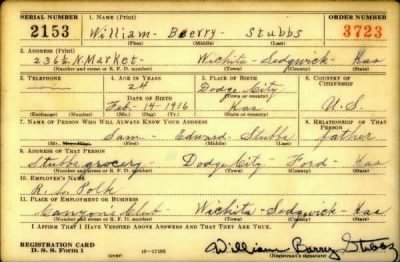 SERIAL NUMBER 1. NAME (Print) ORDER NUMBER
2153 William - Berry - Stubbs 3723
(First) (Middle) (Last)
2. ADDRESS (Print)
236½ N. Market - Wichita - Sedgwick - Kas
(Number and street or R. F. D. number) (Town) (County) (State)
3. TELEPHONE 4. AGE IN YEARS 5. PLACE OF BIRTH 6. COUNTRY OF CITIZENSHIP
24 Dodge City
DATE OF BIRTH (Town or county)
Feb - 14 - 1916 Kas U.S.
(Exchange) (Number) (Mo.) (Day) (Yr.) (State or country)
7. NAME OF PERSON WHO WILL ALWAYS KNOW YOUR ADDRESS 8. RELATIONSHIP OF THAT PERSON
Sam - Edward - Stubbs father
(First) (Middle) (Last)
9. ADDRESS OF THAT PERSON
Stubbs grocery - Dodge City - Ford - Kas
(Number and street or R. F. D. number) (Town) (County) (State)
10. EMPLOYER'S NAME
R. L. Polk
11. PLACE OF EMPLOYMENT OR BUSINESS
Wichita - Sedgwick - Kas
(Number and street or R. F. D. number) (Town) (County) (State)
I AFFIRM THAT I HAVE VERIFIED ABOVE ANSWERS AND THAT THEY ARE TRUE.
REGISTRATION CARD
D. S. S. Form 1 (over) William Barry Stubbs
(Registrant's signature)